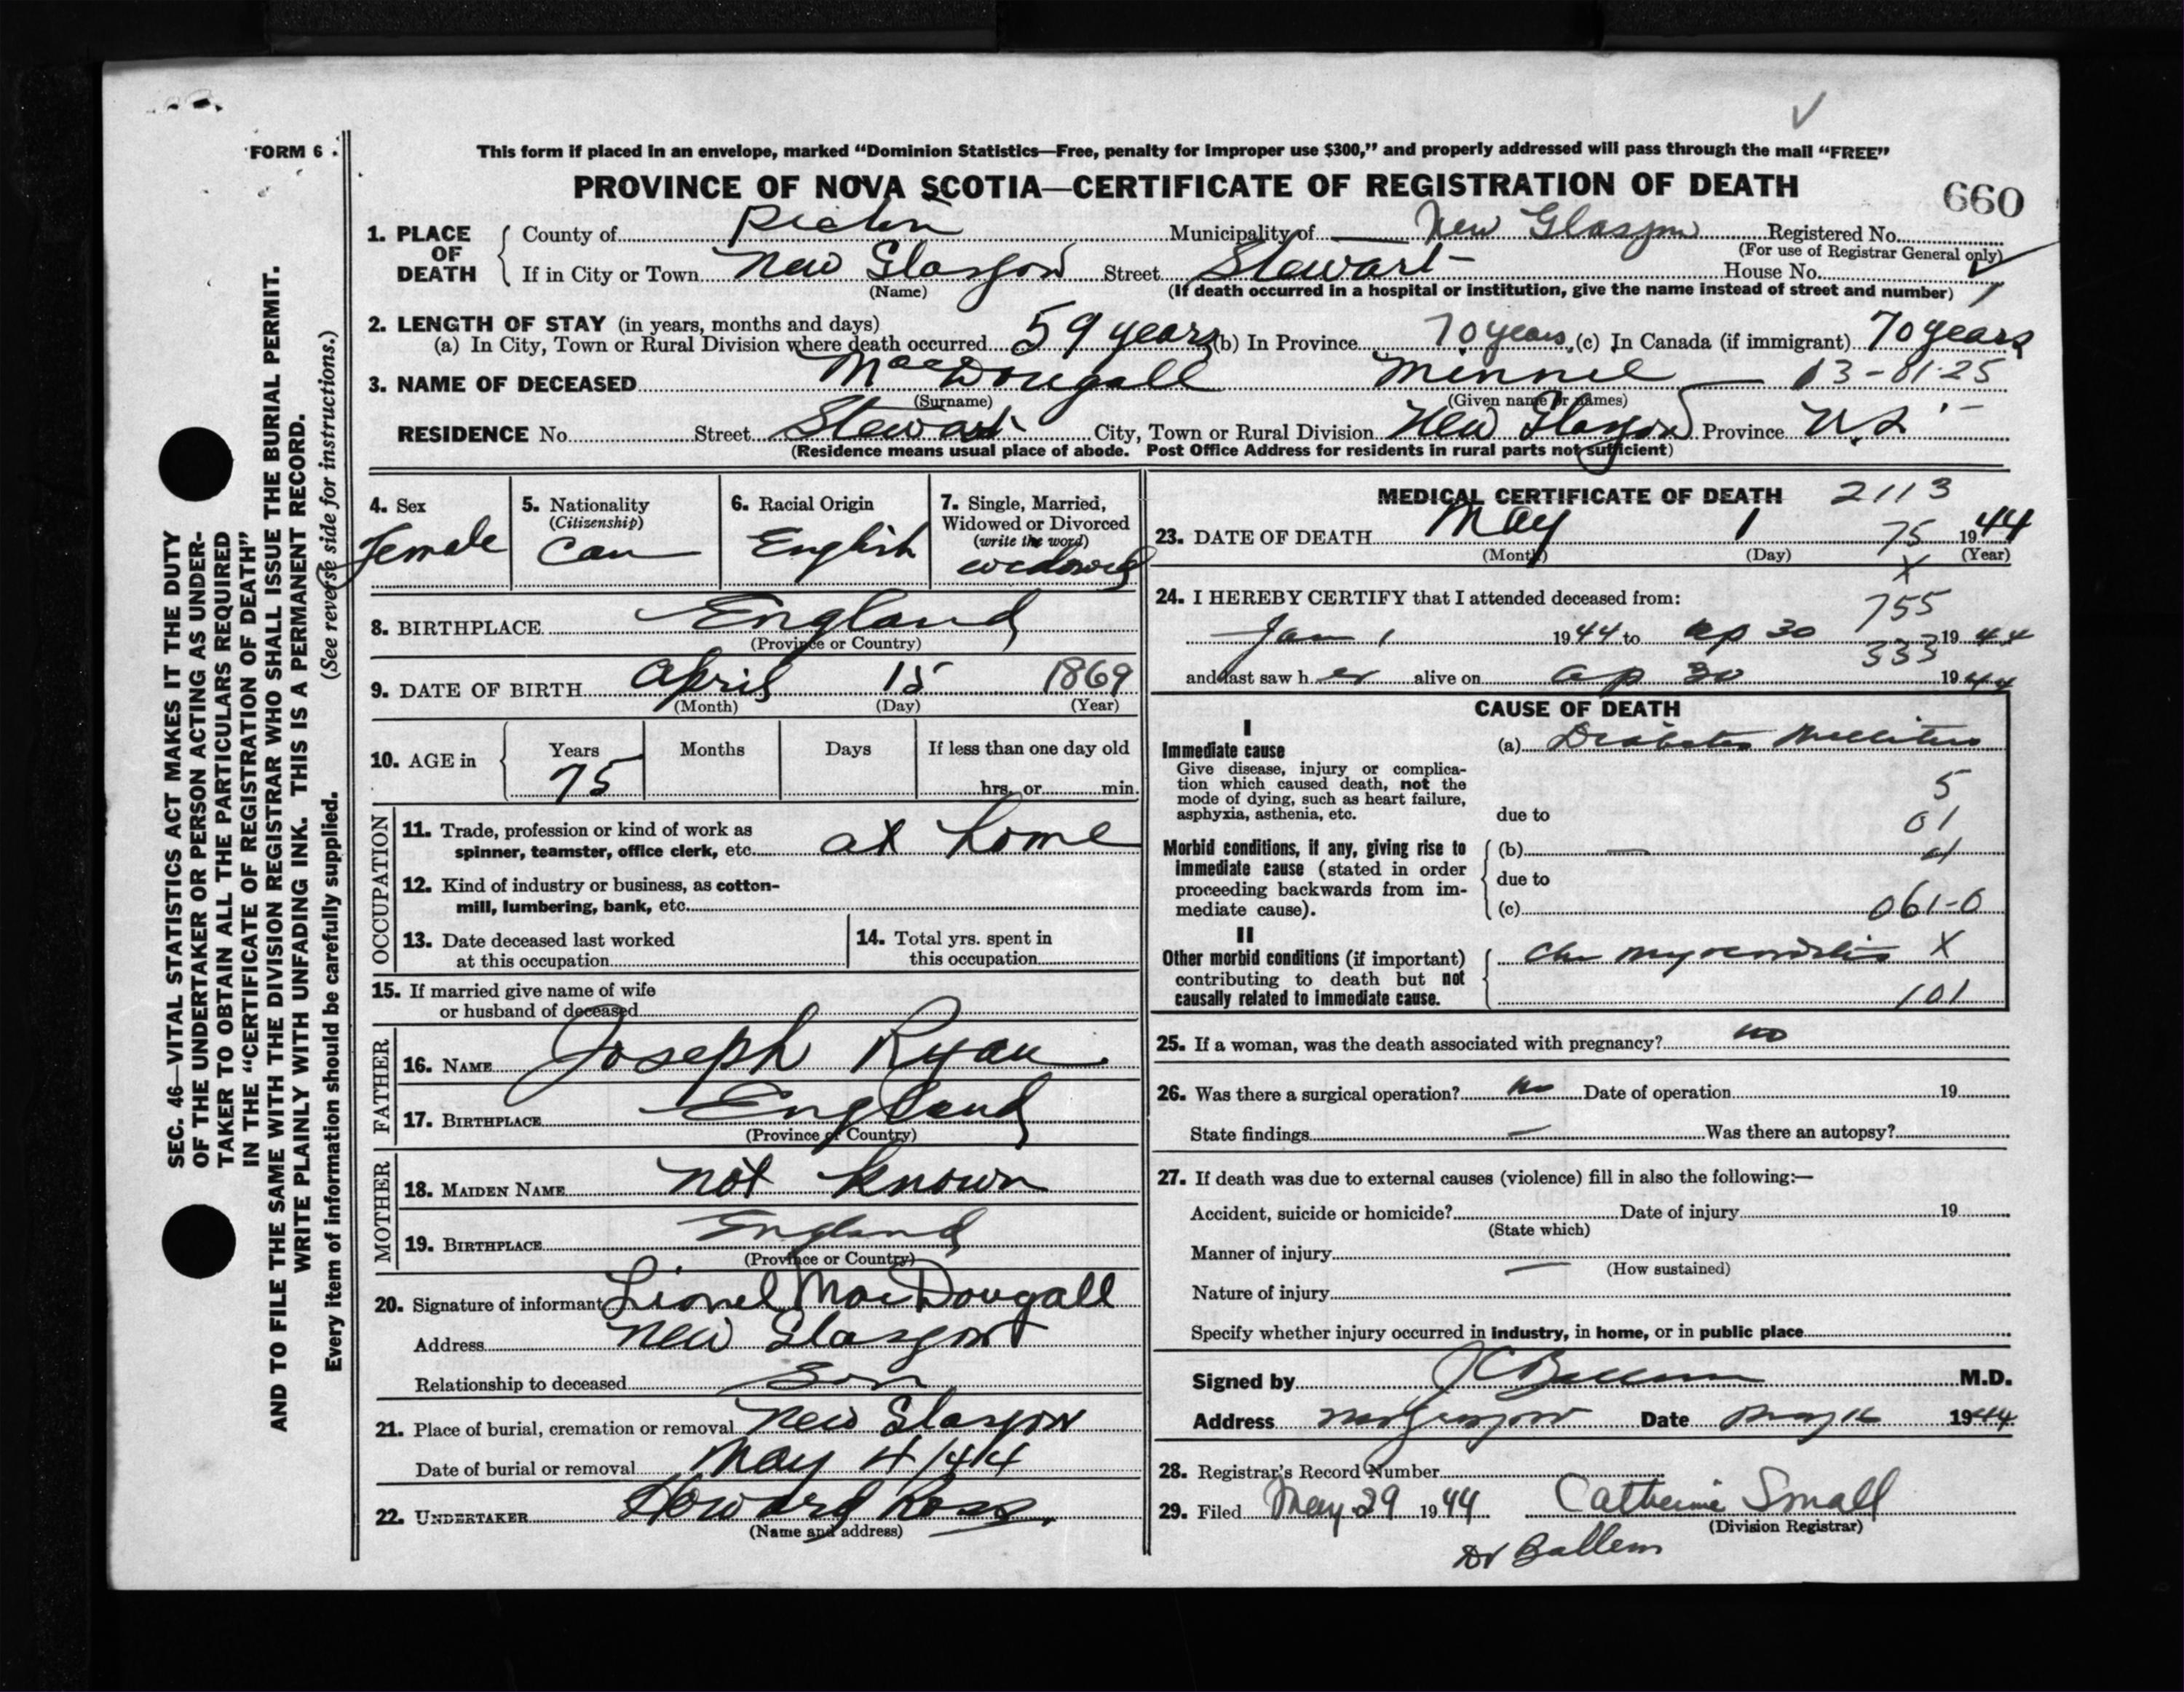 FORM 6
This form if placed in an envelope, marked "Dominion Statistics—Free, penalty for improper use $300," and properly addressed will pass through the mail "FREE"
PROVINCE OF NOVA SCOTIA—CERTIFICATE OF REGISTRATION OF DEATH
660
1. PLACE OF DEATH County of Pictou Municipality of New Glasgow Registered No.
(For use of Registrar General only)
If in City or Town New Glasgow Street Stewart House No.
(Name) (If death occurred in a hospital or institution, give the name instead of street and number)
2. LENGTH OF STAY (in years, months and days)
(a) In City, Town or Rural Division where death occurred 59 years (b) In Province 70 years (c) In Canada (if immigrant) 70 years
3. NAME OF DECEASED MacDougall Minnie 13-01-25
(Surname) (Given name or names)
RESIDENCE No. Street Stewart City, Town or Rural Division New Glasgow Province N.S.
(Residence means usual place of abode. Post Office Address for residents in rural parts not sufficient)
4. Sex Female
5. Nationality (Citizenship) Can
6. Racial Origin English
7. Single, Married, Widowed or Divorced (write the word) widowed
8. BIRTHPLACE England
(Province or Country)
9. DATE OF BIRTH April 15 1869
(Month) (Day) (Year)
10. AGE in Years 75 Months Days If less than one day old
hrs. or min.
OCCUPATION
11. Trade, profession or kind of work as
spinner, teamster, office clerk, etc. at home
12. Kind of industry or business, as cotton-
mill, lumbering, bank, etc.
13. Date deceased last worked
at this occupation
14. Total yrs. spent in
this occupation
15. If married give name of wife
or husband of deceased
FATHER
16. NAME Joseph Ryan
17. BIRTHPLACE England
(Province or Country)
MOTHER
18. MAIDEN NAME not known
19. BIRTHPLACE England
(Province or Country)
20. Signature of informant Lionel MacDougall
Address New Glasgow
Relationship to deceased Son
21. Place of burial, cremation or removal New Glasgow
Date of burial or removal May 4/44
22. UNDERTAKER Howard Ross
(Name and address)
MEDICAL CERTIFICATE OF DEATH 2113
23. DATE OF DEATH May 1 75 1944
(Month) (Day) (Year)
X
24. I HEREBY CERTIFY that I attended deceased from:
755
Jan 1 1944 to Ap 30 1944
333
and last saw her alive on Ap 30 1944
CAUSE OF DEATH
I
Immediate cause (a) Diabetes Mellitus
Give disease, injury or complica-
tion which caused death, not the
mode of dying, such as heart failure,
asphyxia, asthenia, etc. due to
5
01
Morbid conditions, if any, giving rise to
immediate cause (stated in order
proceeding backwards from im-
mediate cause).
(b) —
due to
(c) 061-0
II
Other morbid conditions (if important)
contributing to death but not
causally related to immediate cause.
Chr myocarditis X
101
25. If a woman, was the death associated with pregnancy? no
26. Was there a surgical operation? no Date of operation 19
State findings — Was there an autopsy?
27. If death was due to external causes (violence) fill in also the following:—
Accident, suicide or homicide? Date of injury 19
(State which)
Manner of injury
(How sustained)
Nature of injury
Specify whether injury occurred in industry, in home, or in public place
Signed by J C Ballem M.D.
Address New Glasgow Date May 16 1944
28. Registrar's Record Number
29. Filed May 29 1944 Catherine Small
(Division Registrar)
Dr Ballem
SEC. 46—VITAL STATISTICS ACT MAKES IT THE DUTY
OF THE UNDERTAKER OR PERSON ACTING AS UNDER-
TAKER TO OBTAIN ALL THE PARTICULARS REQUIRED
IN THE "CERTIFICATE OF REGISTRATION OF DEATH"
AND TO FILE THE SAME WITH THE DIVISION REGISTRAR WHO SHALL ISSUE THE BURIAL PERMIT.
WRITE PLAINLY WITH UNFADING INK. THIS IS A PERMANENT RECORD.
Every item of information should be carefully supplied. (See reverse side for instructions.)